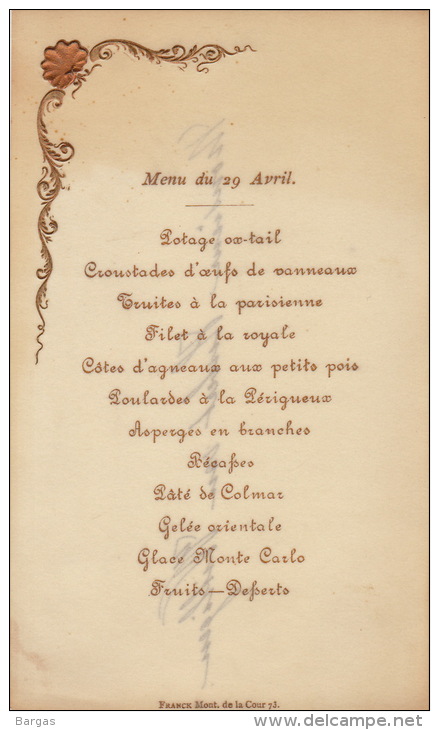 Menu du 29 Avril.
Potage ox-tail
Croustades d'œufs de vanneaux
Truites à la parisienne
Filet à la royale
Côtes d'agneaux aux petits pois
Poulardes à la Périgueux
Asperges en branches
Bécaßes
Pâté de Colmar
Gelée orientale
Glace Monte Carlo
Fruits—Deßerts
FRANCK Mont. de la Cour 73.
Bargas
delcampe.net